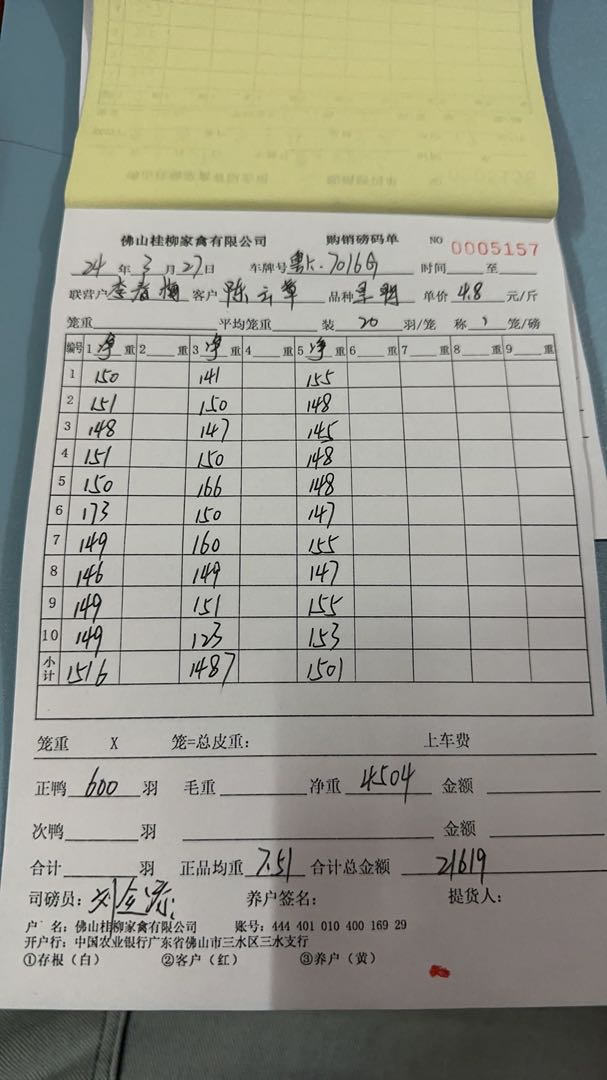 佛山桂柳家禽有限公司 购销磅码单 NO 0005157
24 年 3 月 27 日 车牌号 粤A·7016G 时间 至
联营户 李春梅 客户 陈云草 品种 单价 4.8 元/斤
笼重 平均笼重 装 20 羽/笼 称 1 笼/磅
编号 1 净 重 2 重 3 净 重 4 重 5 净 重 6 重 7 重 8 重 9 重
1 150 141 155
2 151 150 148
3 148 147 145
4 151 150 148
5 150 166 148
6 173 150 147
7 149 160 155
8 146 149 147
9 149 151 155
10 149 123 153
小计 1516 1487 1501
笼重 X 笼=总皮重: 上车费
正鸭 600 羽 毛重 净重 4504 金额
次鸭 羽 金额
合计 羽 正品均重 7.51 合计总金额 21619
司磅员: 养户签名: 提货人:
户 名: 佛山桂柳家禽有限公司 账号: 444 401 010 400 169 29
开户行: 中国农业银行广东省佛山市三水区三水支行
①存根（白） ②客户（红） ③养户（黄）